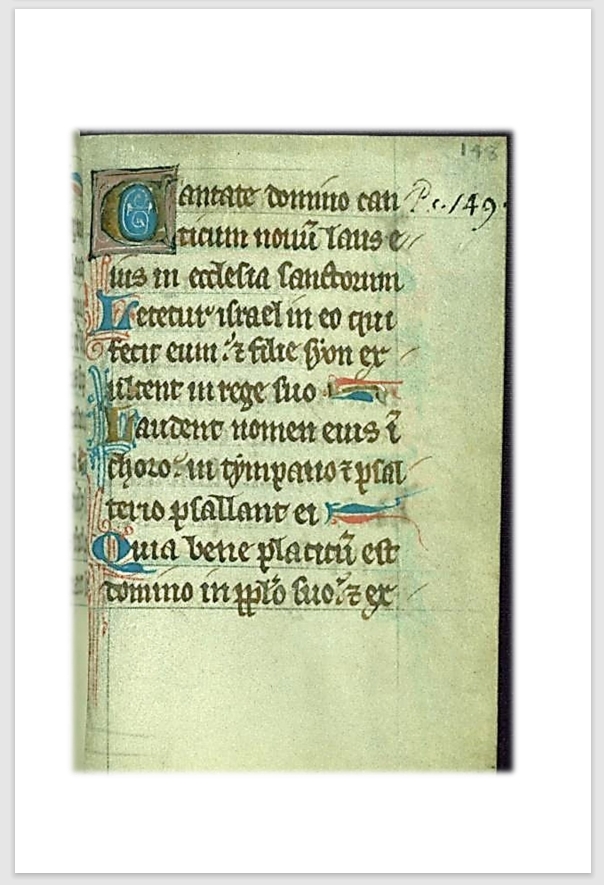 148
Cantate domino can Ps. 149.
ticum nouū laus e
ius in ecclesia sanctorum
Letetur israel in eo qui
fecit eum : ⁊ filie syon ex
ultent in rege suo
Laudent nomen eius ī
choro : in tympano ⁊ psal
terio psallant ei
Quia bene placitū est
domino in pp̄lo suo : ⁊ ex